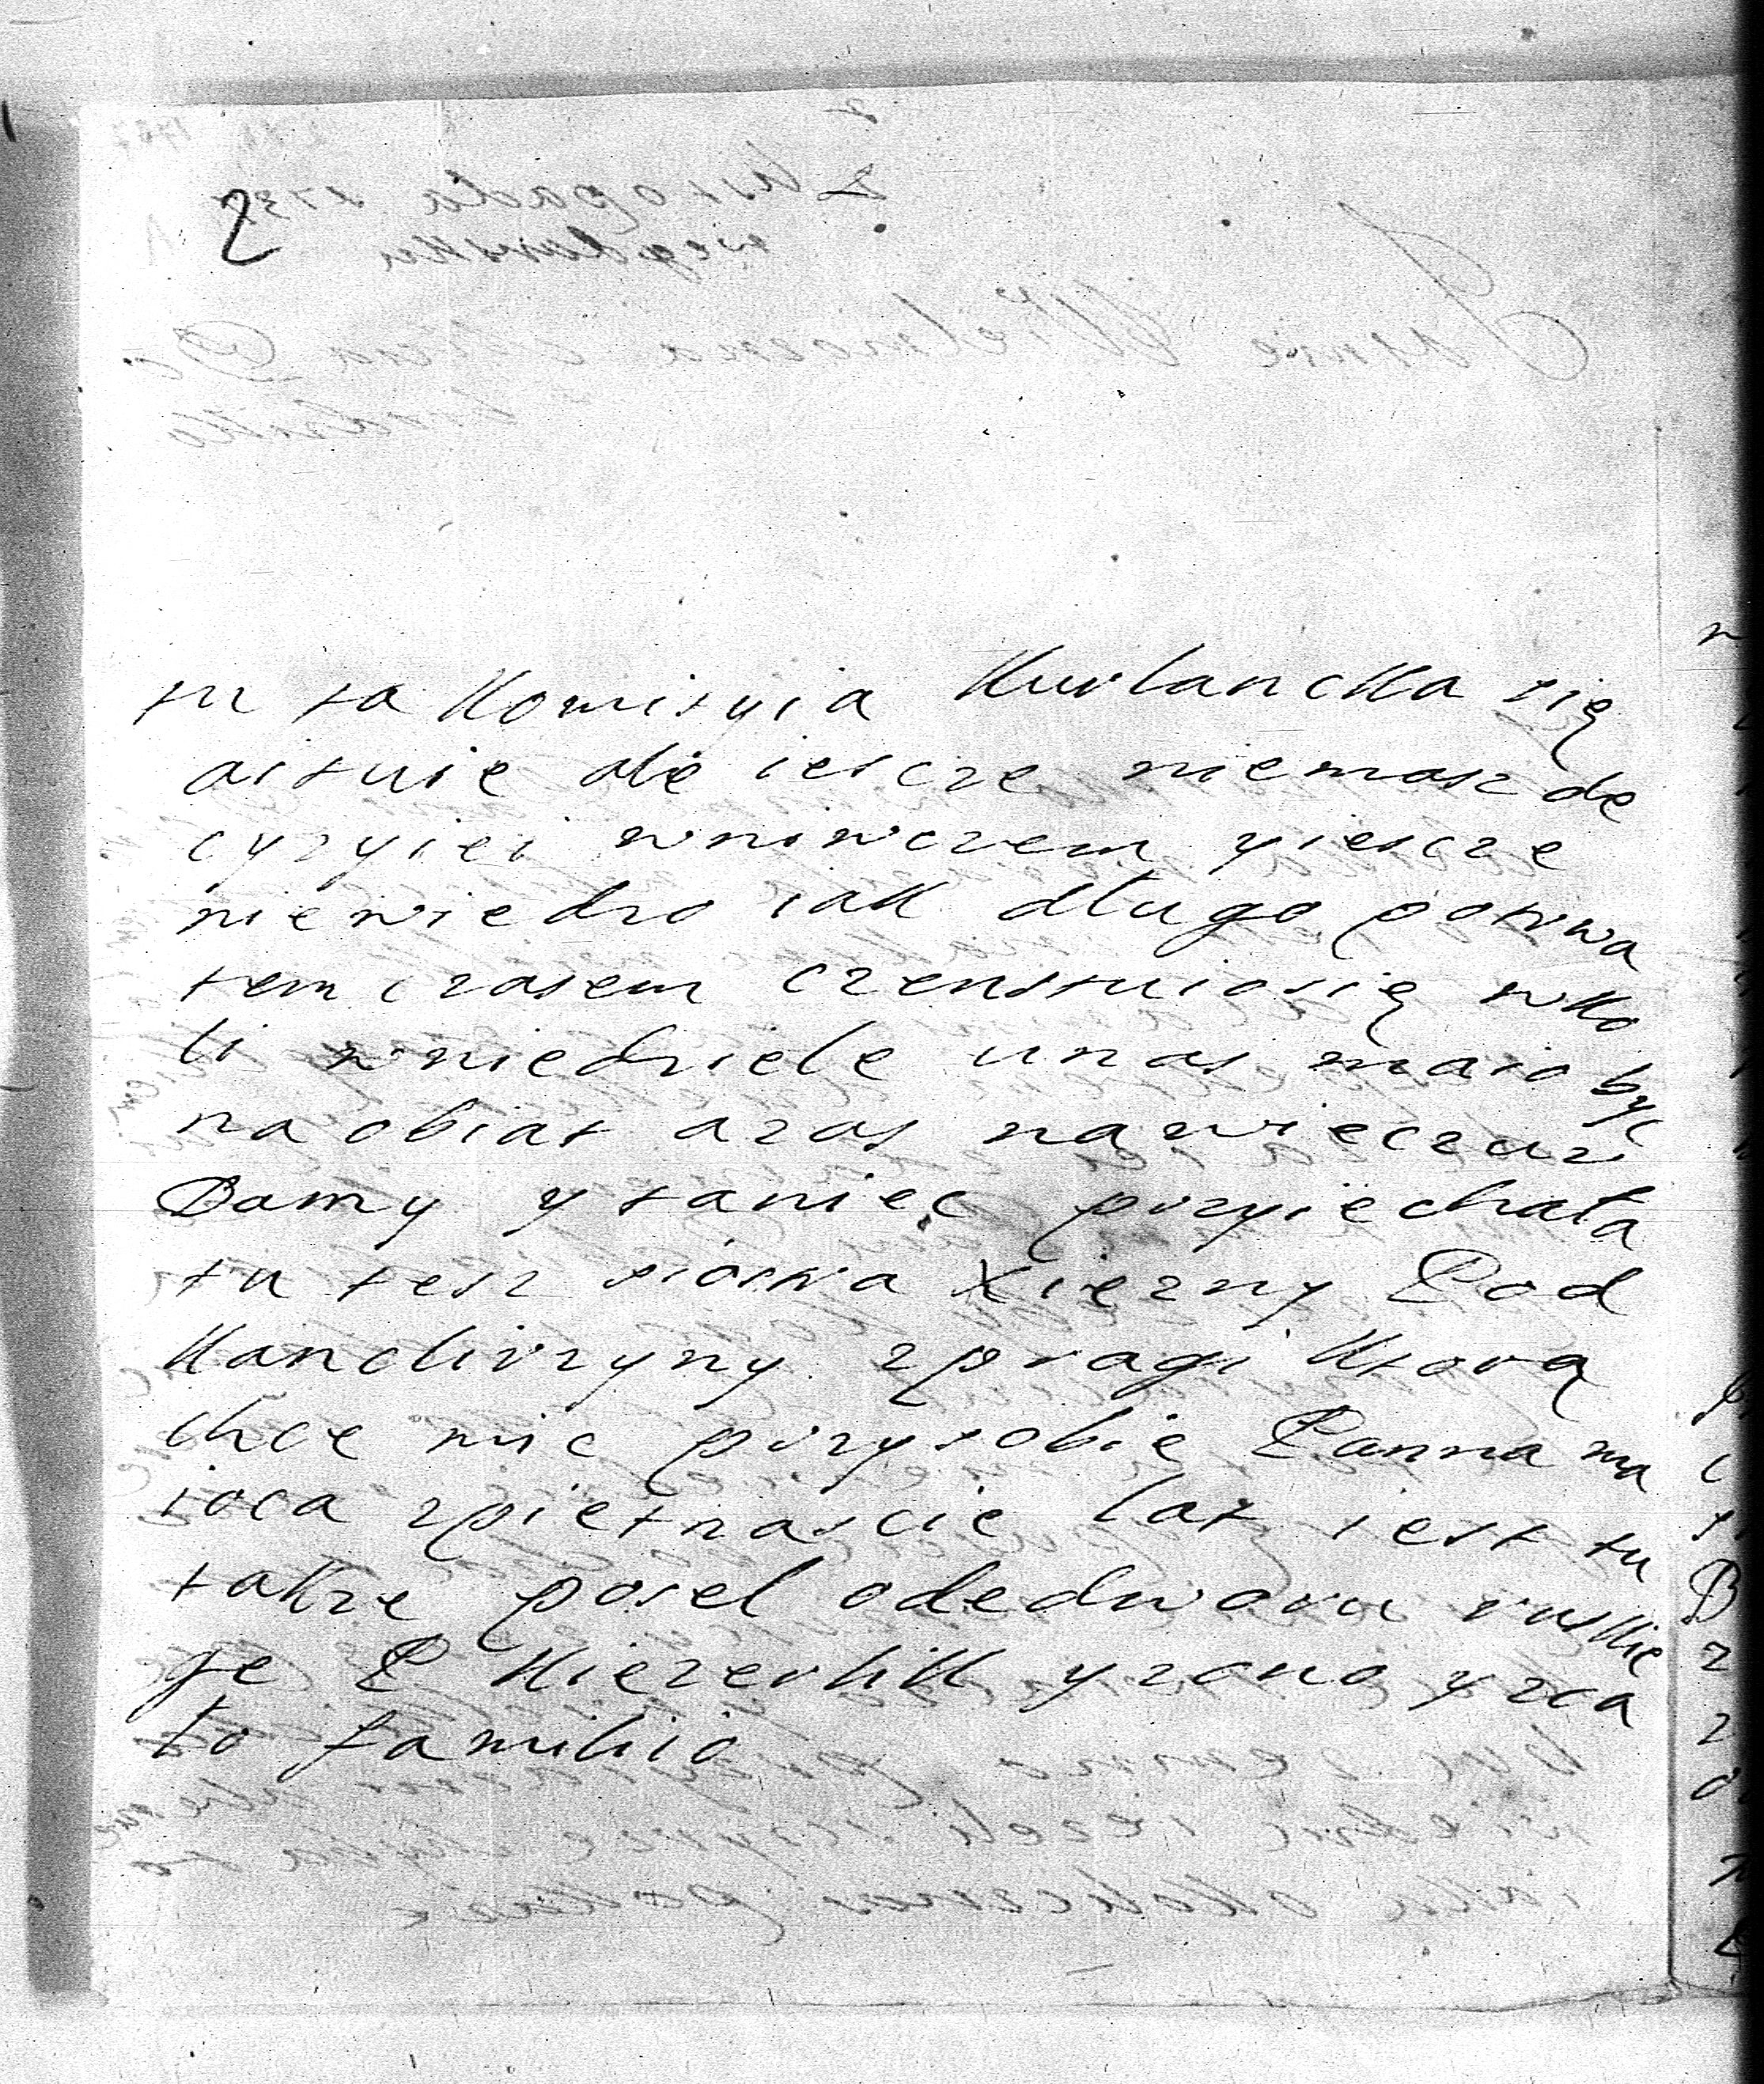 2
tu ta Komisyia Kurlancka się
aituie ale iescze niemasz de
cyzyiei wniwczem yiescze
niewiedzo iak długo potrwa
tem czasem czenstuiosię wko
li wniedziele unas maio być
na obiat azas nawieczur
Damy y taniec przyiechała
tu tesz siostra Xiężny Pod
Kanclirzyny zpragi Ktorą
chce mic przysobie Panna ma
ioca zpietnascie lat iest tu
takze posel odedworu ruskie
ge P Kiezerlik yzono yzca
ło familio